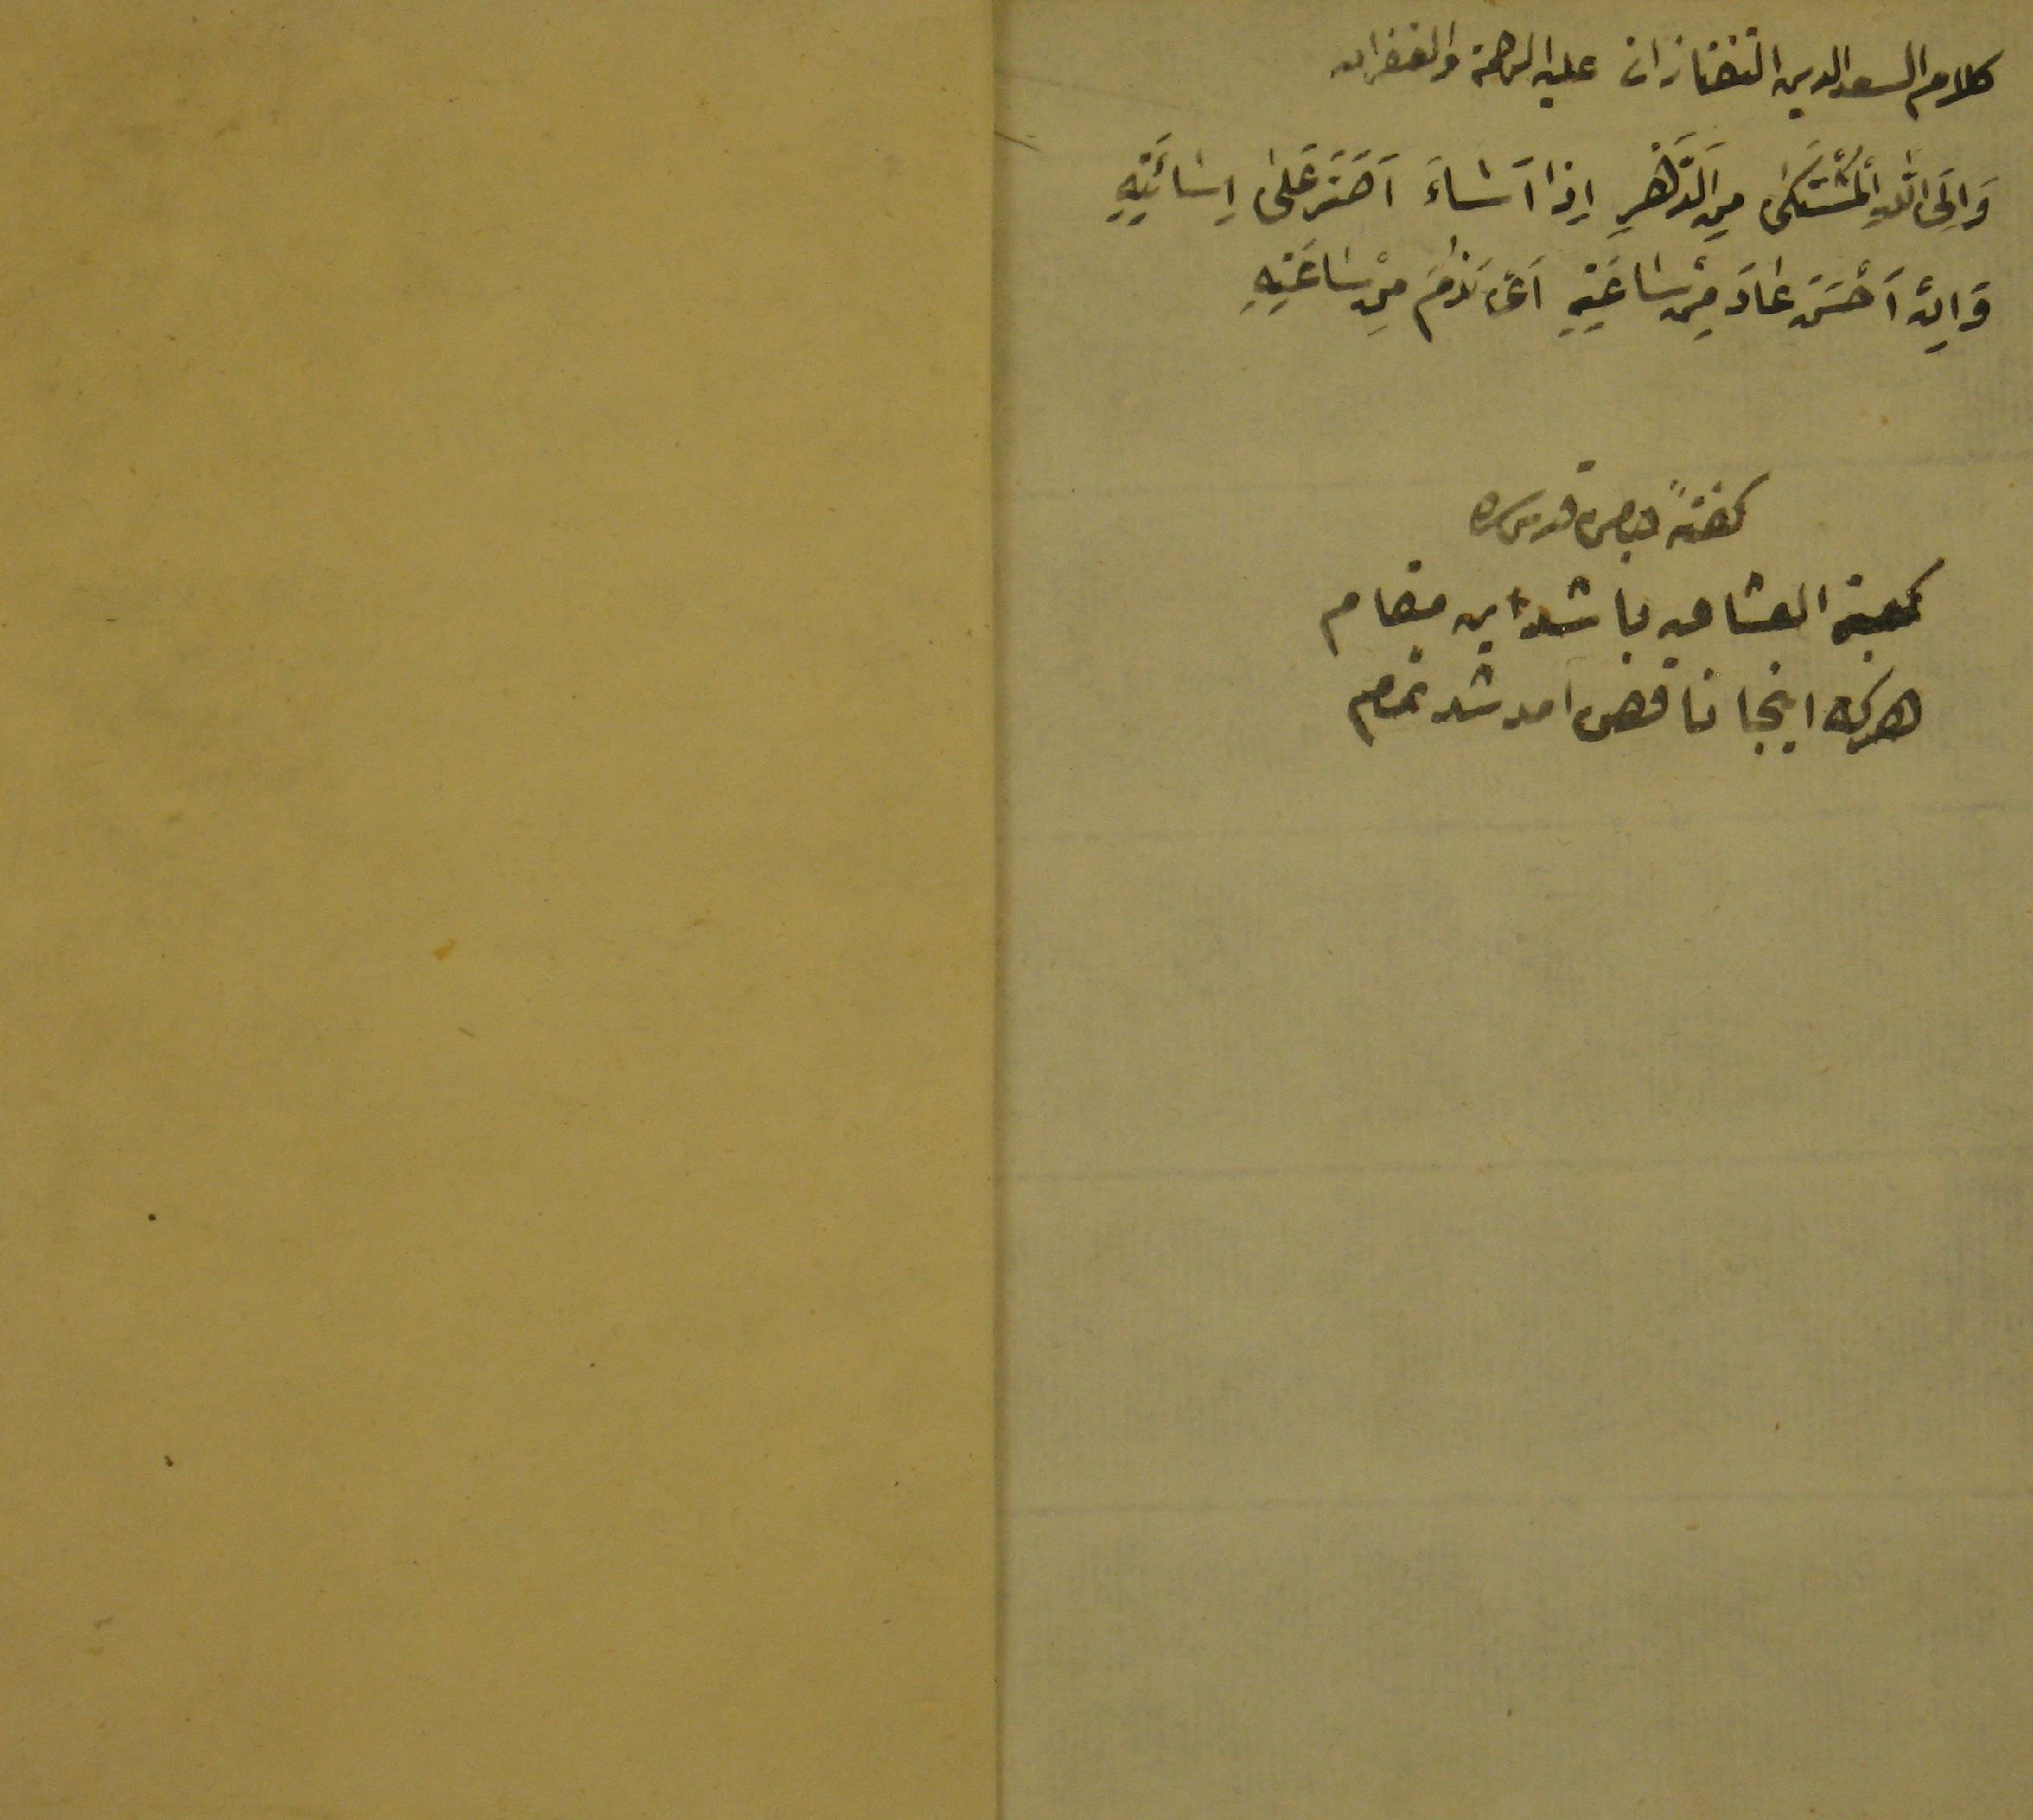 كلام السعد الدين التفتازانى عليه الرحمة والغفران
وَاِلَى اللهِ الْمُشْتَكٰى مِنَ الدَّهْرِ اِذَا اَسَاءَ اَصَرَّ عَلٰى اِسَائَتِهِ
وَاِنْ اَحْسَنَ عَادَ مِنْ سَاعَتِهِ اَىْ نَدِمَ مِنْ سَاعَتِهِ
كفتهٔ جامى قدس سره
كعبة العشاق باشد اين مقام
هركه اينجا ناقص امد شد تمام